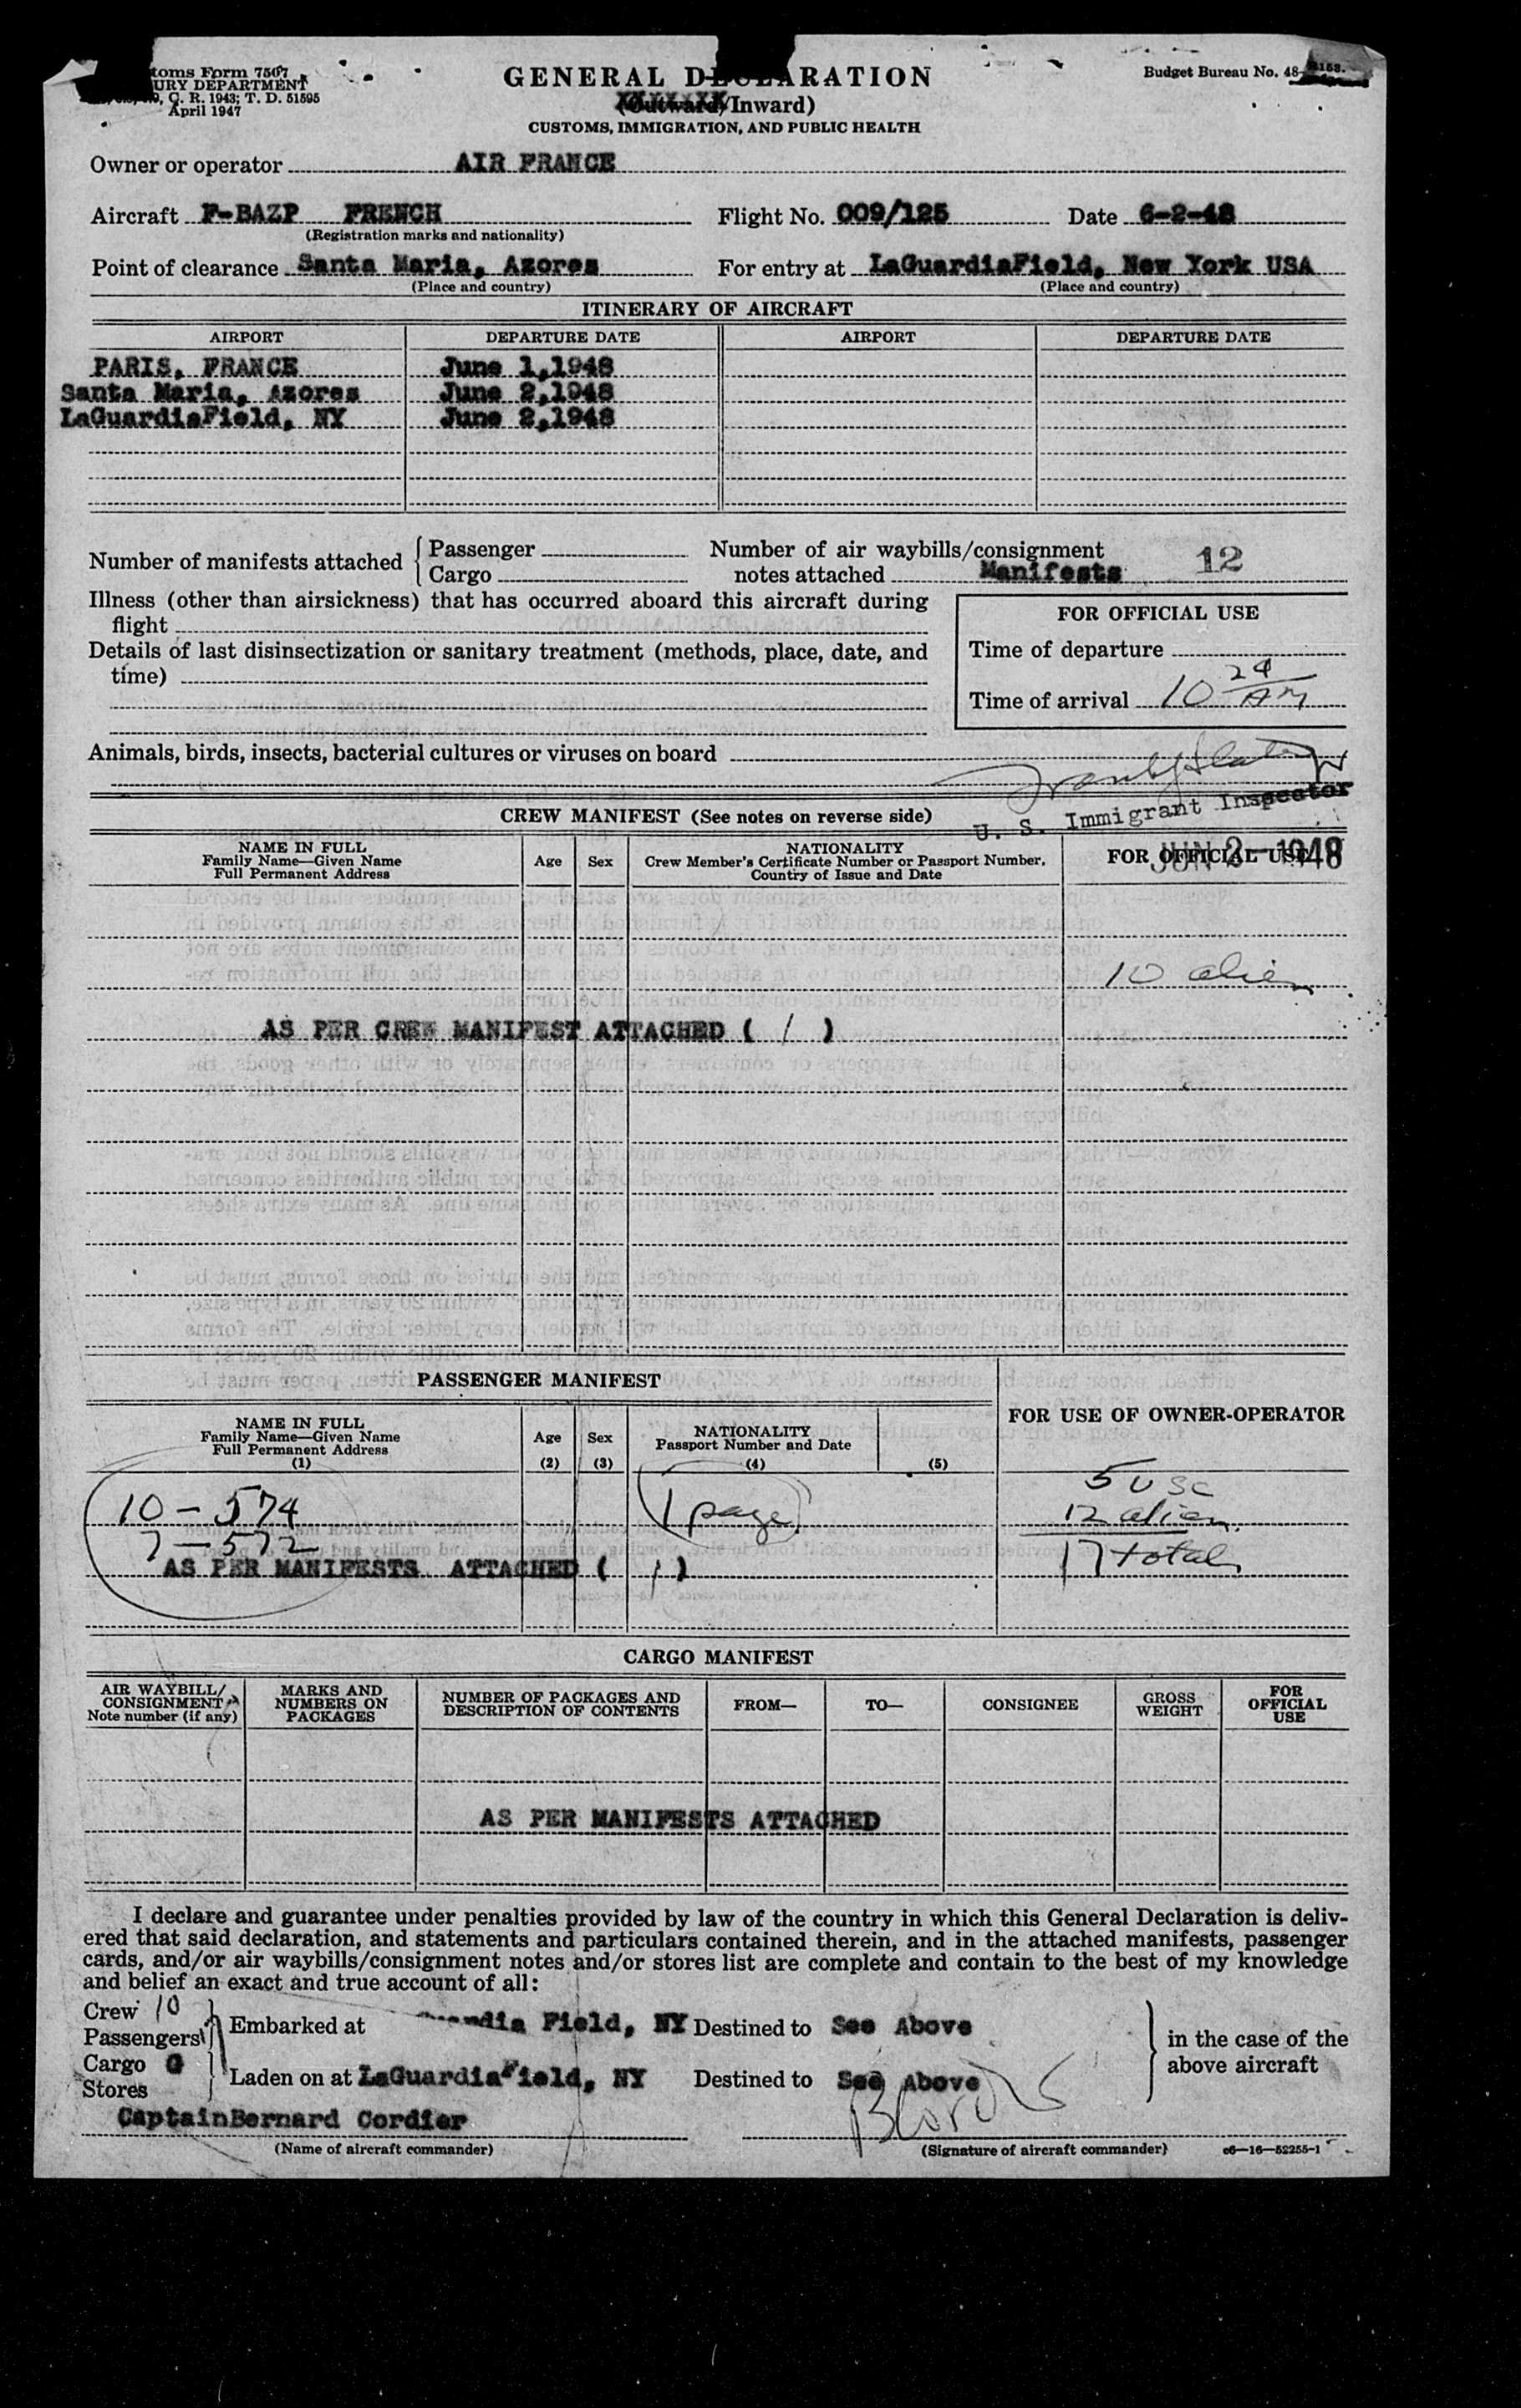 toms Form 7507
URY DEPARTMENT
C. R. 1943; T. D. 51595
April 1947
GENERAL DECLARATION
(Outward/Inward)
CUSTOMS, IMMIGRATION, AND PUBLIC HEALTH
Budget Bureau No. 48
Owner or operator AIR FRANCE
Aircraft F-BAZP FRENCH Flight No. 009/125 Date 6-2-48
(Registration marks and nationality)
Point of clearance Santa Maria, Azores For entry at LaGuardiaField, New York USA
(Place and country) (Place and country)
ITINERARY OF AIRCRAFT
AIRPORT DEPARTURE DATE AIRPORT DEPARTURE DATE
PARIS, FRANCE June 1,1948
Santa Maria, Azores June 2,1948
LaGuardiaField, NY June 2,1948
Number of manifests attached { Passenger
Cargo
Number of air waybills/consignment
notes attached Manifests 12
Illness (other than airsickness) that has occurred aboard this aircraft during
flight
Details of last disinsectization or sanitary treatment (methods, place, date, and
time)
FOR OFFICIAL USE
Time of departure
Time of arrival 10 24 AM
Animals, birds, insects, bacterial cultures or viruses on board
U. S. Immigrant Inspector
CREW MANIFEST (See notes on reverse side)
NAME IN FULL
Family Name—Given Name
Full Permanent Address
Age Sex
NATIONALITY
Crew Member's Certificate Number or Passport Number,
Country of Issue and Date
FOR OFFICIAL USE
JUN 2 - 1948
10 alien
AS PER CREW MANIFEST ATTACHED ( 1 )
PASSENGER MANIFEST
FOR USE OF OWNER-OPERATOR
NAME IN FULL
Family Name—Given Name
Full Permanent Address
(1)
Age
(2)
Sex
(3)
NATIONALITY
Passport Number and Date
(4) (5)
5 USC
10 - 574 1 page 12 alien
7 - 572 17 total
AS PER MANIFESTS ATTACHED ( 1 )
CARGO MANIFEST
AIR WAYBILL/
CONSIGNMENT
Note number (if any)
MARKS AND
NUMBERS ON
PACKAGES
NUMBER OF PACKAGES AND
DESCRIPTION OF CONTENTS
FROM— TO— CONSIGNEE
GROSS
WEIGHT
FOR
OFFICIAL
USE
AS PER MANIFESTS ATTACHED
I declare and guarantee under penalties provided by law of the country in which this General Declaration is deliv-
ered that said declaration, and statements and particulars contained therein, and in the attached manifests, passenger
cards, and/or air waybills/consignment notes and/or stores list are complete and contain to the best of my knowledge
and belief an exact and true account of all:
Crew 10
Passengers
Embarked at Field, NY Destined to See Above
Cargo
Stores
Laden on at LaGuardiaField, NY Destined to See Above
in the case of the
above aircraft
CaptainBernard Cordier
(Name of aircraft commander) (Signature of aircraft commander) c6—16—52255-1